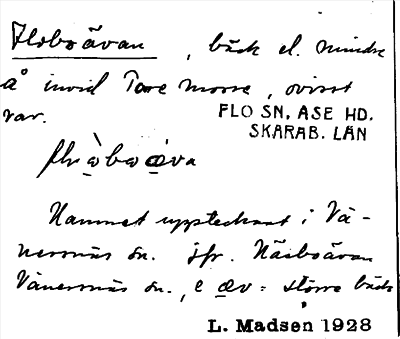 Floboåvan, bäck el. mindre
å invid Tore mosse, ovisst
var.
FLO SN, ASE HD.
SKARAB. LÄN
Namnet upptecknat i Vä-
nersnäs sn. jfr. Näsboåvan
Vänersnäs sn., e æv = större bäck
L. Madsen 1928